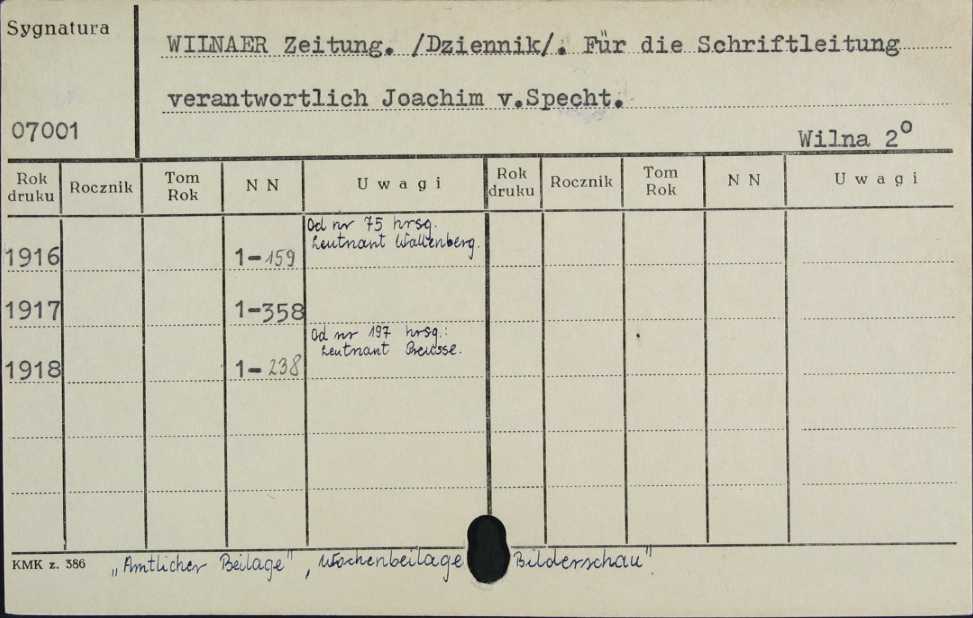 Sygnatura
WILNAER Zeitung. /Dziennik/. Für die Schriftleitung
verantwortlich Joachim v.Specht.
07001
Wilna 2°
Rok druku Rocznik Tom Rok N N Uwagi Rok druku Rocznik Tom Rok N N Uwagi
Od nr 75 hrsg.
Leutnant Wallenberg.
1916 1-159
1917 1-358
Od nr 197 hrsg.:
Leutnant
1918 1-238
KMK z. 386 „Amtlicher Beilage", Wochenbeilage Bilderschau"